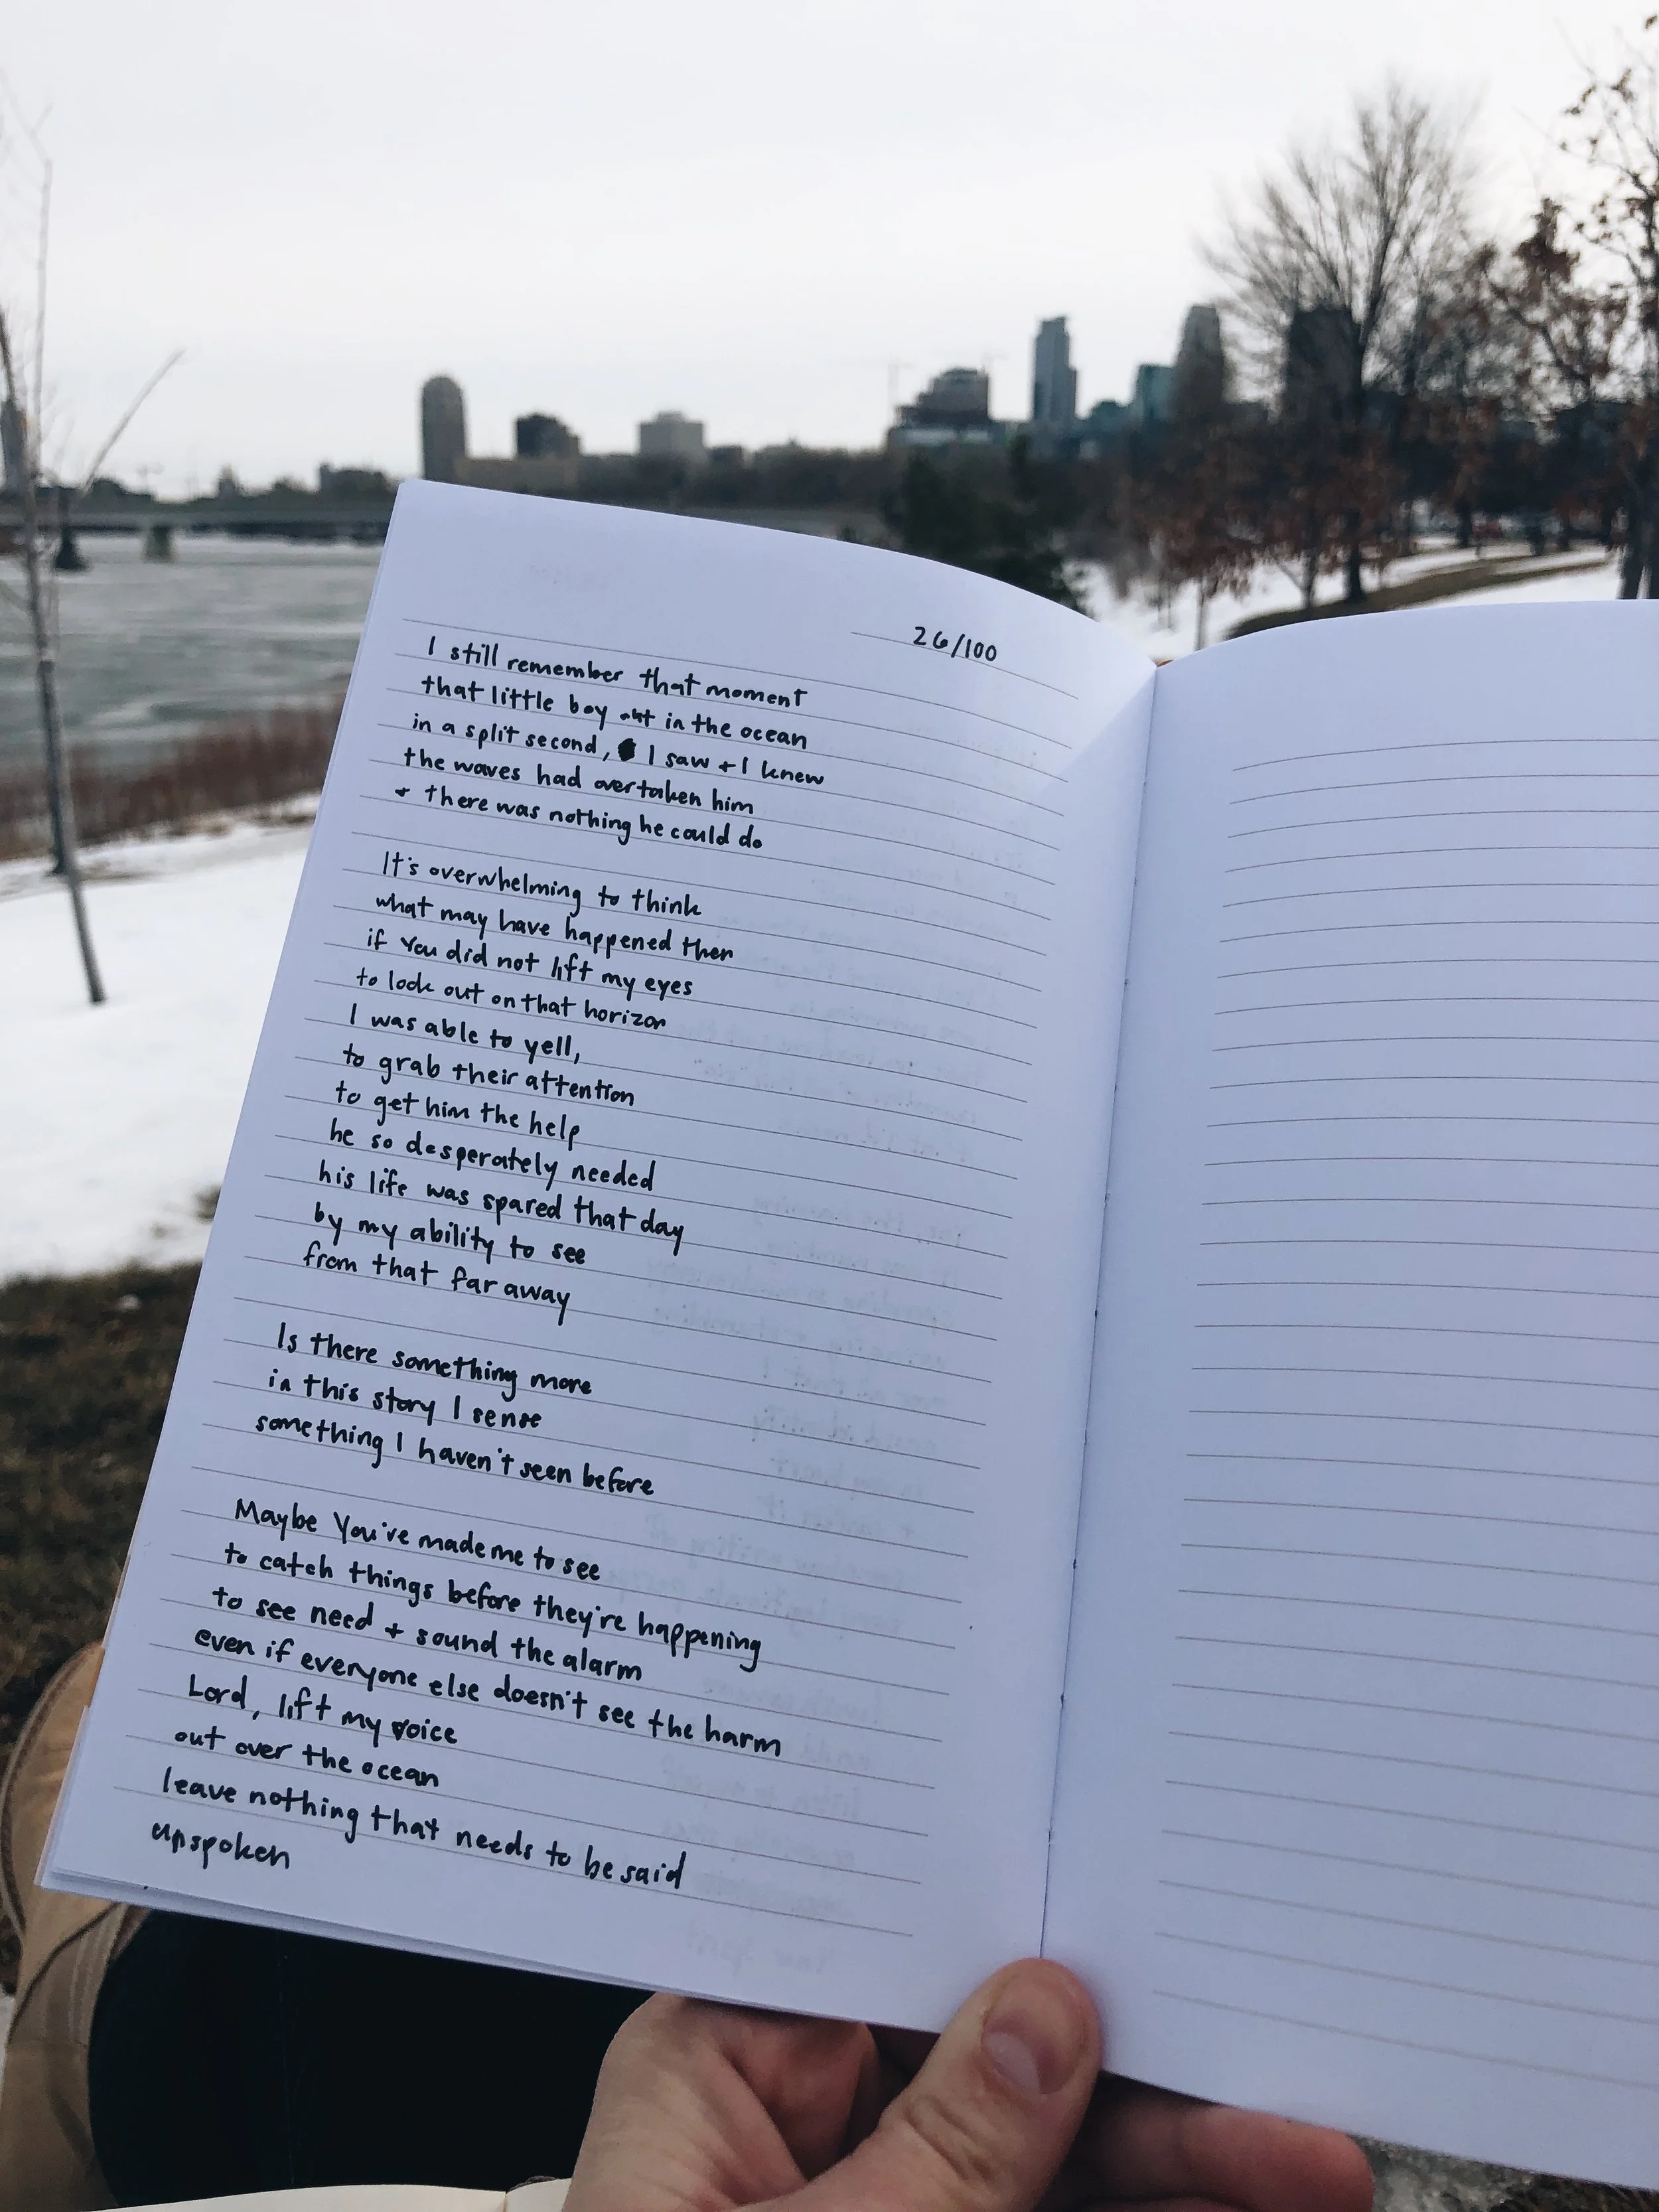 26/100
I still remember that moment
that little boy out in the ocean
in a split second, I saw + I knew
the waves had overtaken him
+ there was nothing he could do
It's overwhelming to think
what may have happened then
if You did not lift my eyes
to look out on that horizon
I was able to yell,
to grab their attention
to get him the help
he so desperately needed
his life was spared that day
by my ability to see
from that far away
Is there something more
in this story I sense
something I haven't seen before
Maybe You've made me to see
to catch things before they're happening
to see need + sound the alarm
even if everyone else doesn't see the harm
Lord, lift my voice
out over the ocean
leave nothing that needs to be said
unspoken